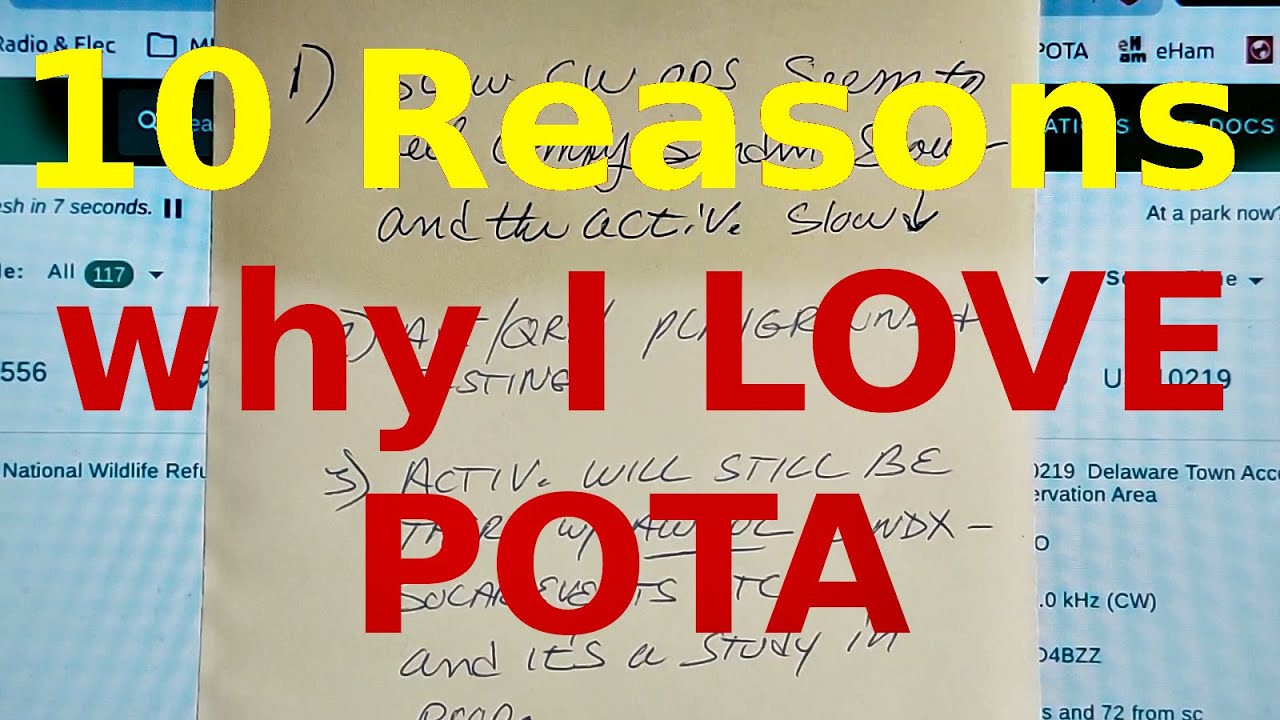 10 Reasons
why I LOVE
POTA
Radio & Elec
POTA eHam
1) Slow CW OPS Seem to
and the activ. Slow↓
DOCS
esh in 7 seconds.
At a park now?
All 117
PLAYGROUND +
TESTING
556
0219
National Wildlife Refu
0219 Delaware Town Acc
ervation Area
3) ACTIV. WILL STILL BE
THERE w/ AWFUL CNDX –
SOLAR EVENTS ETC
and it's a study in
PROP.
.0 kHz (CW)
D4BZZ
s and 72 from sc